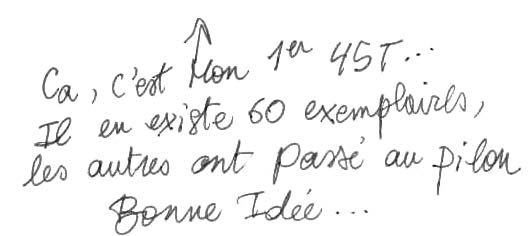 Ca, c'est Mon 1er 45T...
Il en existe 60 exemplaires,
les autres ont passé au pilon
Bonne Idée...